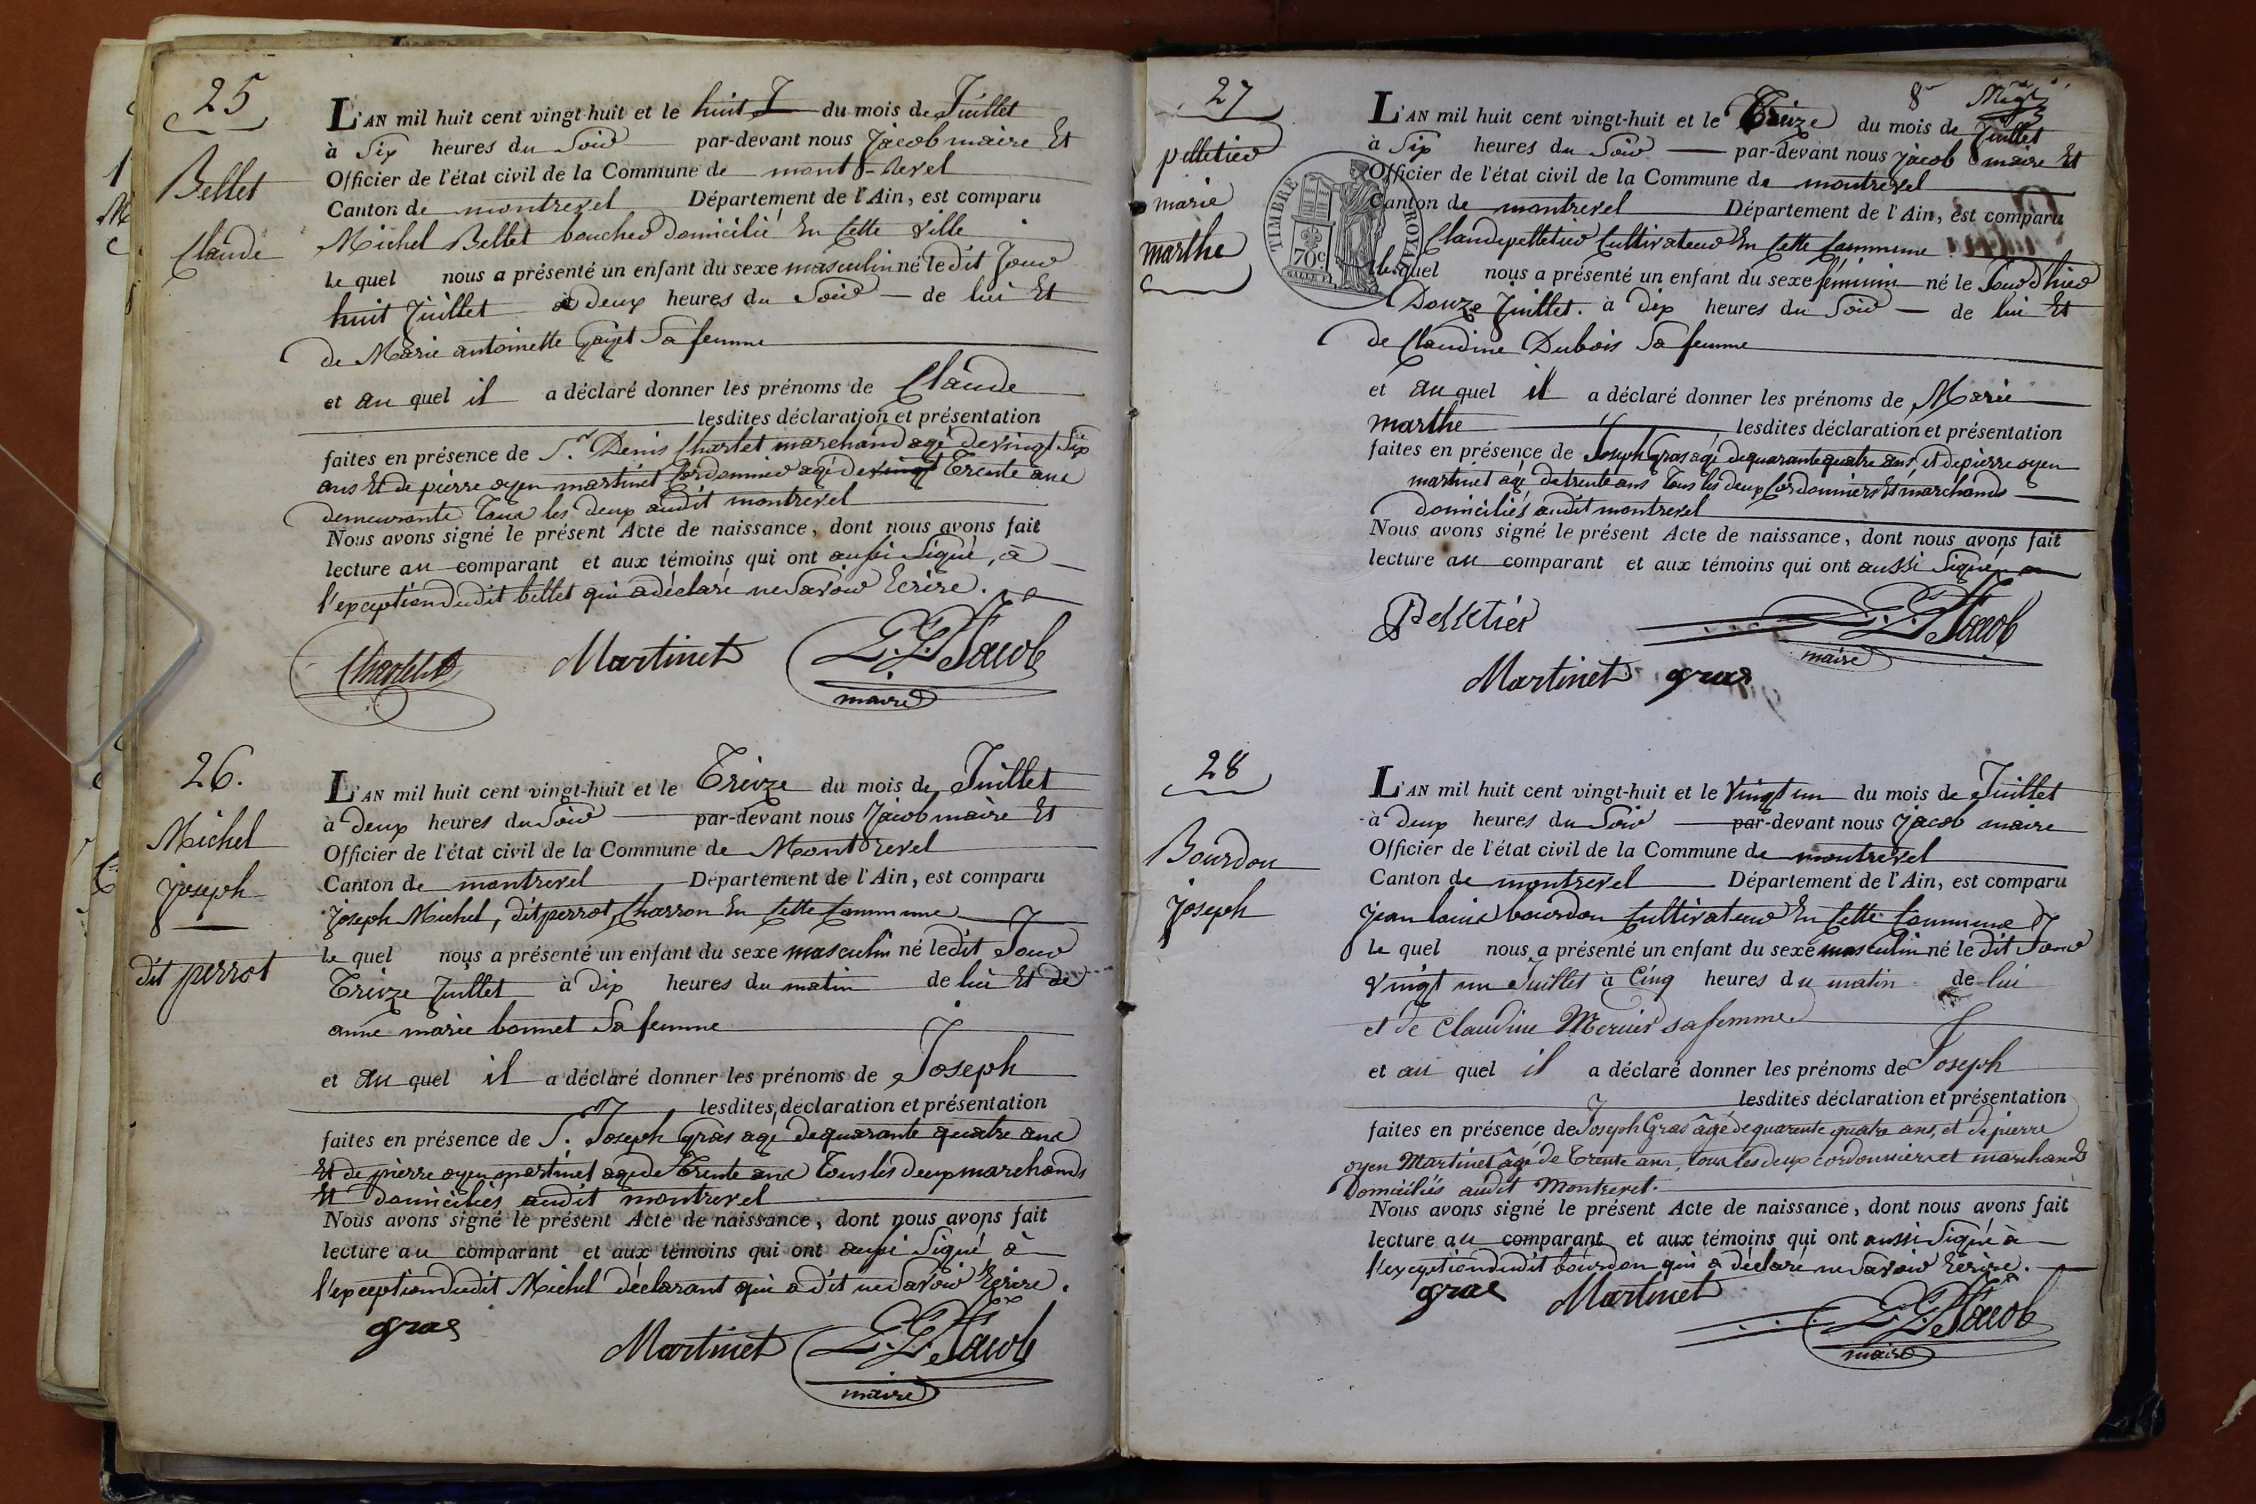 25
Bellet
Claude
L'AN mil huit cent vingt-huit et le huit du mois de Juillet
à Six heures du Soir par-devant nous Jacob maire Et
Officier de l'état civil de la Commune de mont-revel
Canton de montrevel Département de l'Ain, est comparu
Michel Bellet boucher domicilié En Cette Ville
le quel nous a présenté un enfant du sexe masculin né le dit Jour
huit Juillet à Deux heures du Soir de lui Et
de Marie antoinette gayet Sa femme
et au quel il a déclaré donner les prénoms de Claude
lesdites déclaration et présentation
faites en présence de S.r Denis Charlet marchand agé de vingt Six
ans Et de pierre oyen martinet Cordonnier agé de vingt Trente ans
demeurants Tous les deux audit montrevel
Nous avons signé le présent Acte de naissance, dont nous avons fait
lecture au comparant et aux témoins qui ont aussi Signé, à
l'exception dudit bellet qui a déclaré ne Savoir Ecrire.
Charlet Martinet Jacob
maire
26.
Michel
joseph
dit perrot
L'AN mil huit cent vingt-huit et le Treize du mois de Juillet
à deux heures du Soir par-devant nous Jacob maire Et
Officier de l'état civil de la Commune de Montrevel
Canton de montrevel Département de l'Ain, est comparu
joseph Michel, dit perrot, Charron En Cette Commune
le quel nous a présenté un enfant du sexe masculin né le dit Jour
Treize Juillet à dix heures du matin de lui Et de
anne marie bonnet Sa femme
et au quel il a déclaré donner les prénoms de Joseph
lesdites déclaration et présentation
faites en présence de S. Joseph gras agé de quarante quatre ans
Et de pierre oyen martinet agé de Trente ans Tous les deux marchands
Et domiciliés audit montrevel
Nous avons signé le présent Acte de naissance, dont nous avons fait
lecture au comparant et aux témoins qui ont aussi Signé à
l'exception dudit Michel déclarant qui a dit ne Savoir Ecrire.
gras
Martinet Jacob
maire
27
pelletier
marie
marthe
TIMBRE ROYAL
70c
8
L'AN mil huit cent vingt-huit et le Treize du mois de Juillet
à Six heures du Soir par-devant nous Jacob maire Et
Officier de l'état civil de la Commune de montrevel
Canton de montrevel Département de l'Ain, est comparu
Claude pelletier Cultivateur En Cette Commune
lequel nous a présenté un enfant du sexe féminin né le Jour d'hier
Douze Juillet. à dix heures du Soir de lui Et
de Claudine Dubois Sa femme
et au quel il a déclaré donner les prénoms de Marie
marthe lesdites déclaration et présentation
faites en présence de Joseph Gras agé de quarante quatre ans, et de pierre oyen
martinet agé de trente ans Tous les deux Cordonniers Et marchands
domiciliés audit montrevel
Nous avons signé le présent Acte de naissance, dont nous avons fait
lecture au comparant et aux témoins qui ont aussi Signé.
Pelletier Jacob
maire
Martinet gras
28
Bourdon
joseph
L'AN mil huit cent vingt-huit et le Vingt un du mois de Juillet
à deux heures du Soir par-devant nous Jacob maire
Officier de l'état civil de la Commune de montrevel
Canton de montrevel Département de l'Ain, est comparu
jean louis bourdon Cultivateur En Cette Commune
le quel nous a présenté un enfant du sexe masculin né le dit Jour
vingt un Juillet à Cinq heures du matin de lui
et de Claudine Mercier sa femme
et au quel il a déclaré donner les prénoms de Joseph
lesdites déclaration et présentation
faites en présence de Joseph Gras âgé de quarente quatre ans, et de pierre
oyen Martinet âgé de trente ans, tous les deux cordonniers et marchands
Domiciliés audit Montrevel.
Nous avons signé le présent Acte de naissance, dont nous avons fait
lecture au comparant et aux témoins qui ont aussi Signé à
l'exception dudit bourdon qui a déclaré ne Savoir Ecrire.
gras Martinet Jacob
maire